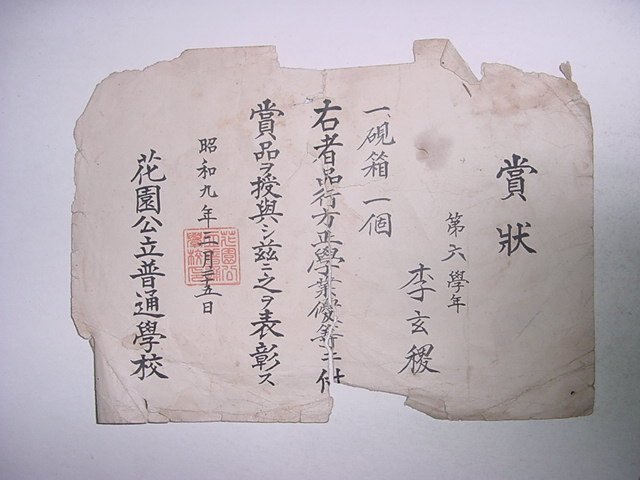 賞狀
第六學年
李玄稷
一、硯箱 一個
右者品行方正學業優等ニ付
賞品ヲ授與シ玆ニ之ヲ表彰ス
昭和九年三月二五日
花園公立普通學校